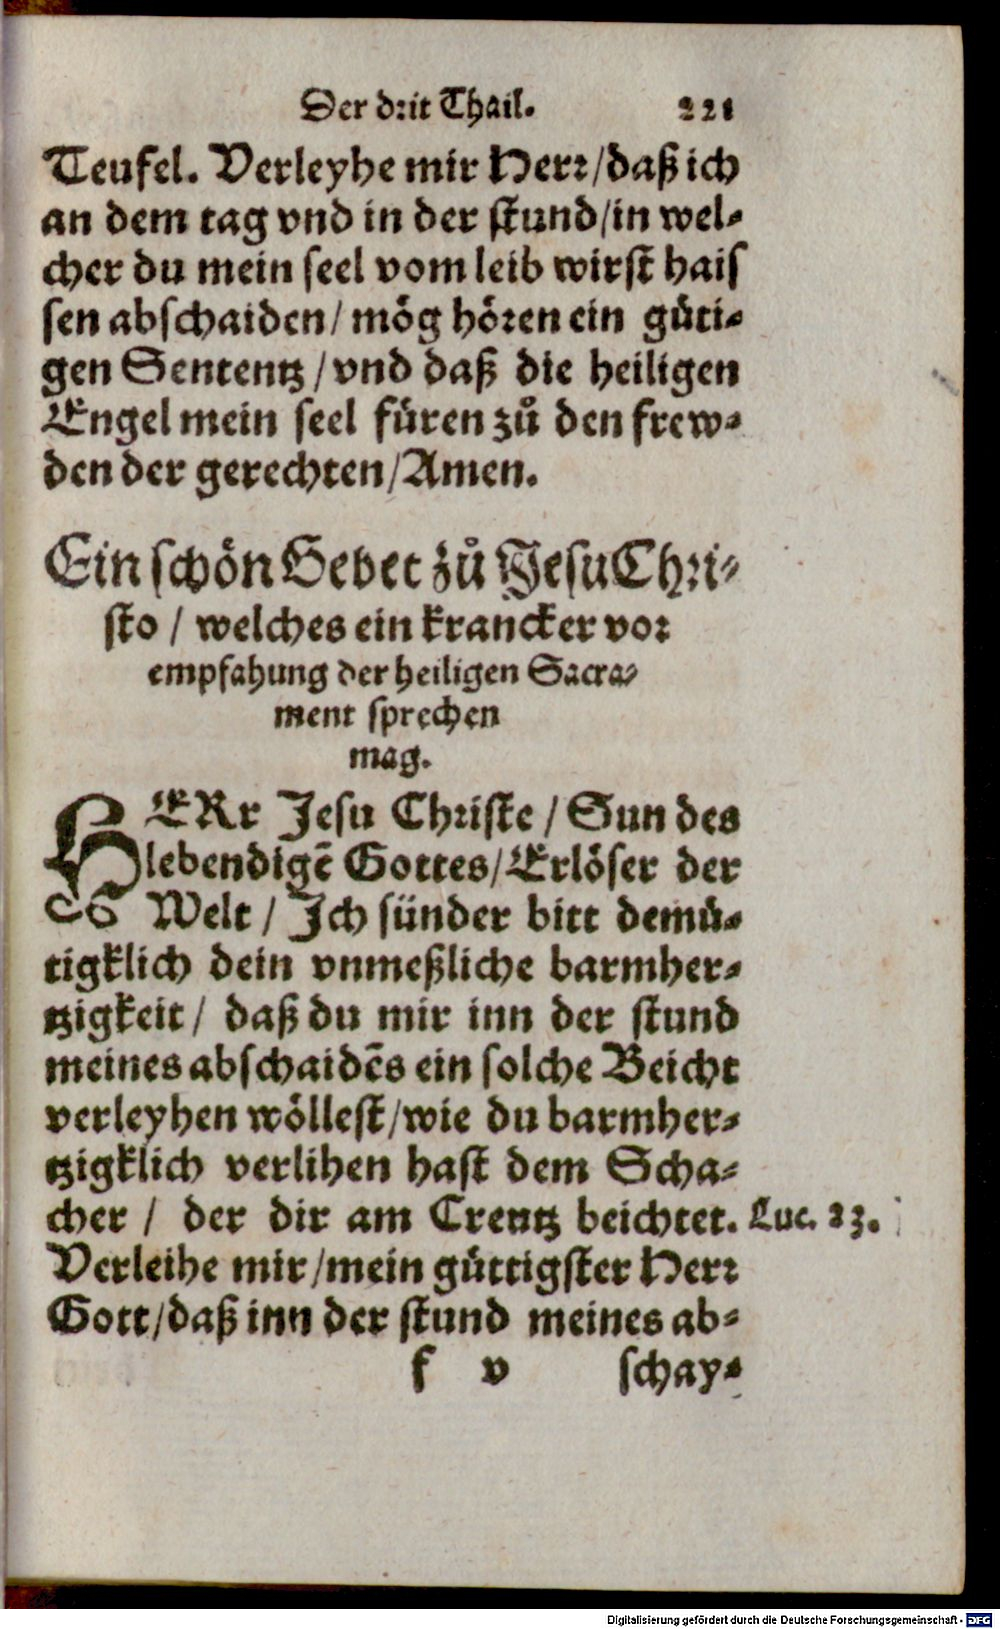 Der drit Thail. 221
Teufel. Verleyhe mir Herr/daß ich
an dem tag vnd in der stund/in wel-
cher du mein seel vom leib wirst hais
sen abschaiden/ mög hören ein gůti-
gen Sententz/vnd daß die heiligen
Engel mein seel füren zů den frew-
den der gerechten/Amen.
Ein schön Gebet zů Jesu Chri-
sto / welches ein krancker vor
empfahung der heiligen Sacra-
ment sprechen
mag.
HERr Jesu Christe / Sun des
lebendigē Gottes/Erlöser der
Welt / Ich sünder bitt demü-
tigklich dein vnmeßliche barmher-
tzigkeit/ daß du mir inn der stund
meines abschaidēs ein solche Beicht
verleyhen wöllest/wie du barmher-
tzigklich verlihen hast dem Scha-
cher / der dir am Creutz beichtet. Luc. 23.
Verleihe mir/mein gůttigster Herr
Gott/daß inn der stund meines ab-
f v schay-
Digitalisierung gefördert durch die Deutsche Forschungsgemeinschaft - DFG